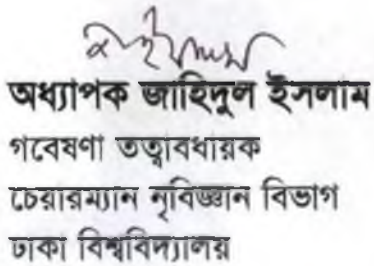 অধ্যাপক জাহিদুল ইসলাম
গবেষণা তত্ত্বাবধায়ক
চেয়ারম্যান নৃবিজ্ঞান বিভাগ
ঢাকা বিশ্ববিদ্যালয়